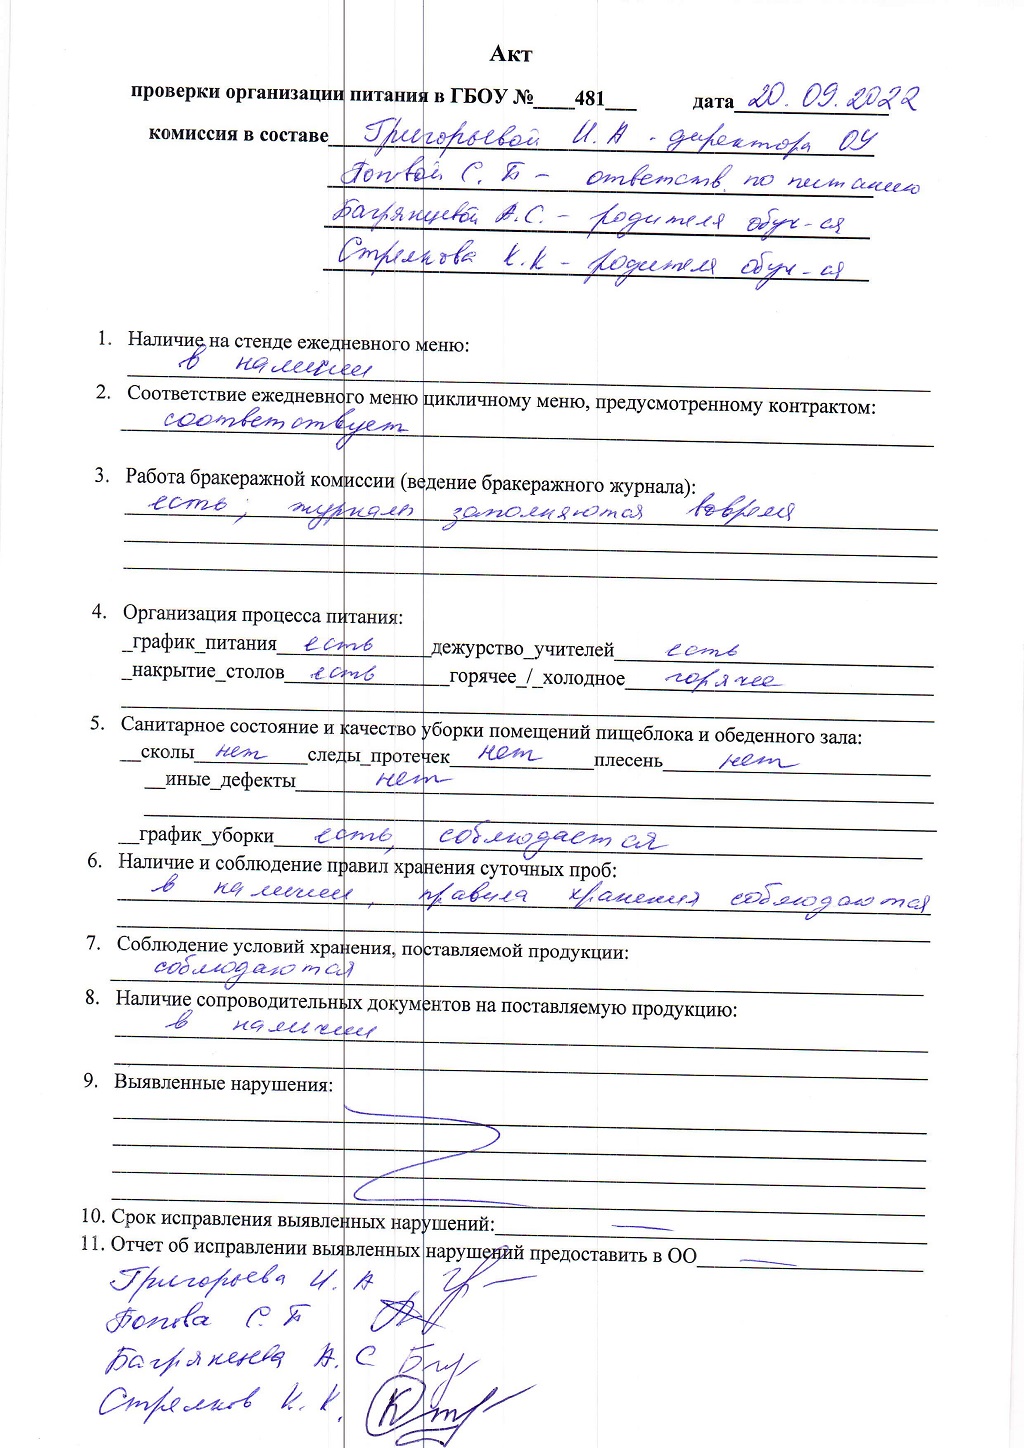 Акт
проверки организации питания в ГБОУ №____481___ дата 20.09.2022
комиссия в составе Григорьевой И.А - директора ОУ
С. Б - ответств. по питанию
Багрянцевой А.С. - родителя обуч-ся
Стрелкова К.К - родителя обуч-ся
1. Наличие на стенде ежедневного меню:
в наличии
2. Соответствие ежедневного меню цикличному меню, предусмотренному контрактом:
соответствует
3. Работа бракеражной комиссии (ведение бракеражного журнала):
есть; журналы заполняются вовремя
4. Организация процесса питания:
_график_питания есть дежурство_учителей есть
_накрытие_столов есть горячее_/_холодное горячее
5. Санитарное состояние и качество уборки помещений пищеблока и обеденного зала:
__сколы нет следы_протечек нет плесень нет
__иные_дефекты нет
__график_уборки есть, соблюдается
6. Наличие и соблюдение правил хранения суточных проб:
в наличии, правила хранения соблюдаются
7. Соблюдение условий хранения, поставляемой продукции:
соблюдаются
8. Наличие сопроводительных документов на поставляемую продукцию:
в наличии
9. Выявленные нарушения:
10. Срок исправления выявленных нарушений: —
11. Отчет об исправлении выявленных нарушений предоставить в ОО —
Григорьева И. А
С. Б
Багрянцева А. С
Стрелков К. К.